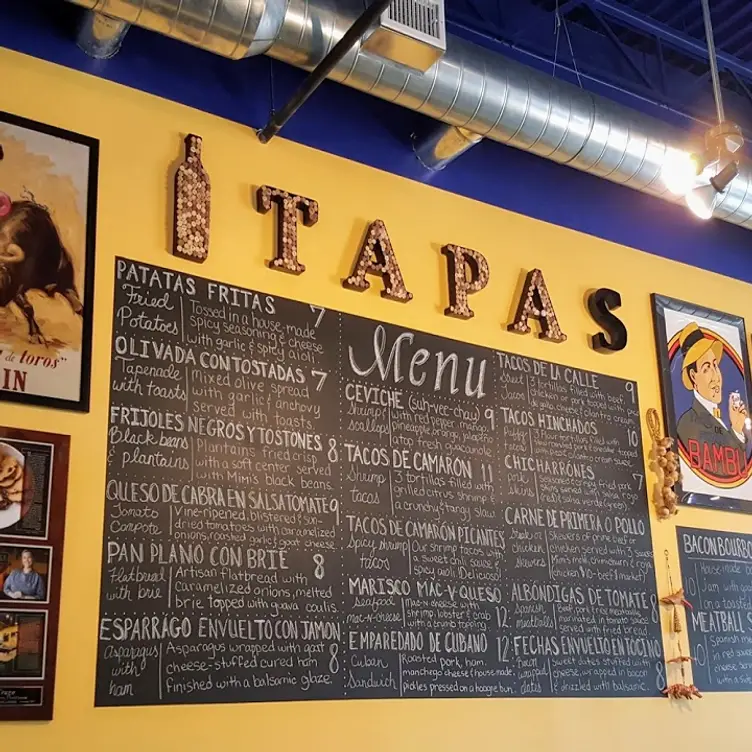 TAPAS
PATATAS FRITAS 7
Fried Potatoes
Tossed in a house made
spicy seasoning & cheese
with garlic & spicy aioli.
OLIVADA CON TOSTADAS 7
Tapenade with toasts
mixed olive spread
with garlic & anchovy
served with toasts.
FRIJOLES NEGROS Y TOSTONES 8
Black beans & plantains
Plantains fried crisp
with a soft center served
with Mimi's black beans.
QUESO DE CABRA EN SALSA TOMATE 9
Tomato Compote
Vine-ripened, blistered & sun-
dried tomatoes with caramelized
onions, roasted garlic & goat cheese
PAN PLANO CON BRIE 8
Flatbread with brie
Artisan flatbread with
caramelized onions, melted
brie topped with guava coulis.
ESPARRAGO ENVUELTO CON JAMON 8
Asparagus with ham
Asparagus wrapped with goat
cheese-stuffed cured ham
finished with a balsamic glaze.
Menu
CEVICHE (suh-vee-chay) 9
Shrimp scallops
with red pepper, mango,
pineapple, orange, jalapeño
atop fresh guacamole
TACOS DE CAMARÓN 11
Shrimp tacos
3 tortillas filled with
grilled citrus shrimp &
a crunchy & tangy slaw
TACOS DE CAMARÓN PICANTES
Spicy shrimp tacos
Our shrimp tacos with
a sweet chili sauce &
spicy aioli. Delicioso!
MARISCO MAC Y QUESO 12
Seafood mac-n-cheese
Mac-n-cheese with
shrimp, lobster & crab
with a crunch topping
EMPAREDADO DE CUBANO 12
Cuban Sandwich
Roasted pork, ham,
manchego cheese & house made
pickles pressed on a hoagie bun
TACOS DE LA CALLE 9
Street Tacos
3 tortillas filled with beef,
chicken or pork topped with pico
de gallo, cheese & cilantro cream
TACOS HINCHADOS 10
Puffy tacos
3 flour tortillas filled with
CHICHARRÓNES 7
pork skins
Seasoned crispy fried pork
skins served with salsa roja
(red) & salsa verde (green)
CARNE DE PRIMERA O POLLO
chicken skewers
Skewers of prime beef or
chicken served with 3 sauces
ALBÓNDIGAS DE TOMATE 8
Spanish meatballs
Beef, pork & rice meatballs
marinated in tomato sauce
served with fried bread.
FECHAS ENVUELTO EN TOCINO 8
Bacon wrapped dates
Sweet dates stuffed with
cheese, wrapped in bacon
& drizzled with balsamic.
de toros"
IN
BAMBU
BACON BOURBON
House made
10
Jam with
on a toast
MEATBALL S
Spanish m
10
in red sauce
with a